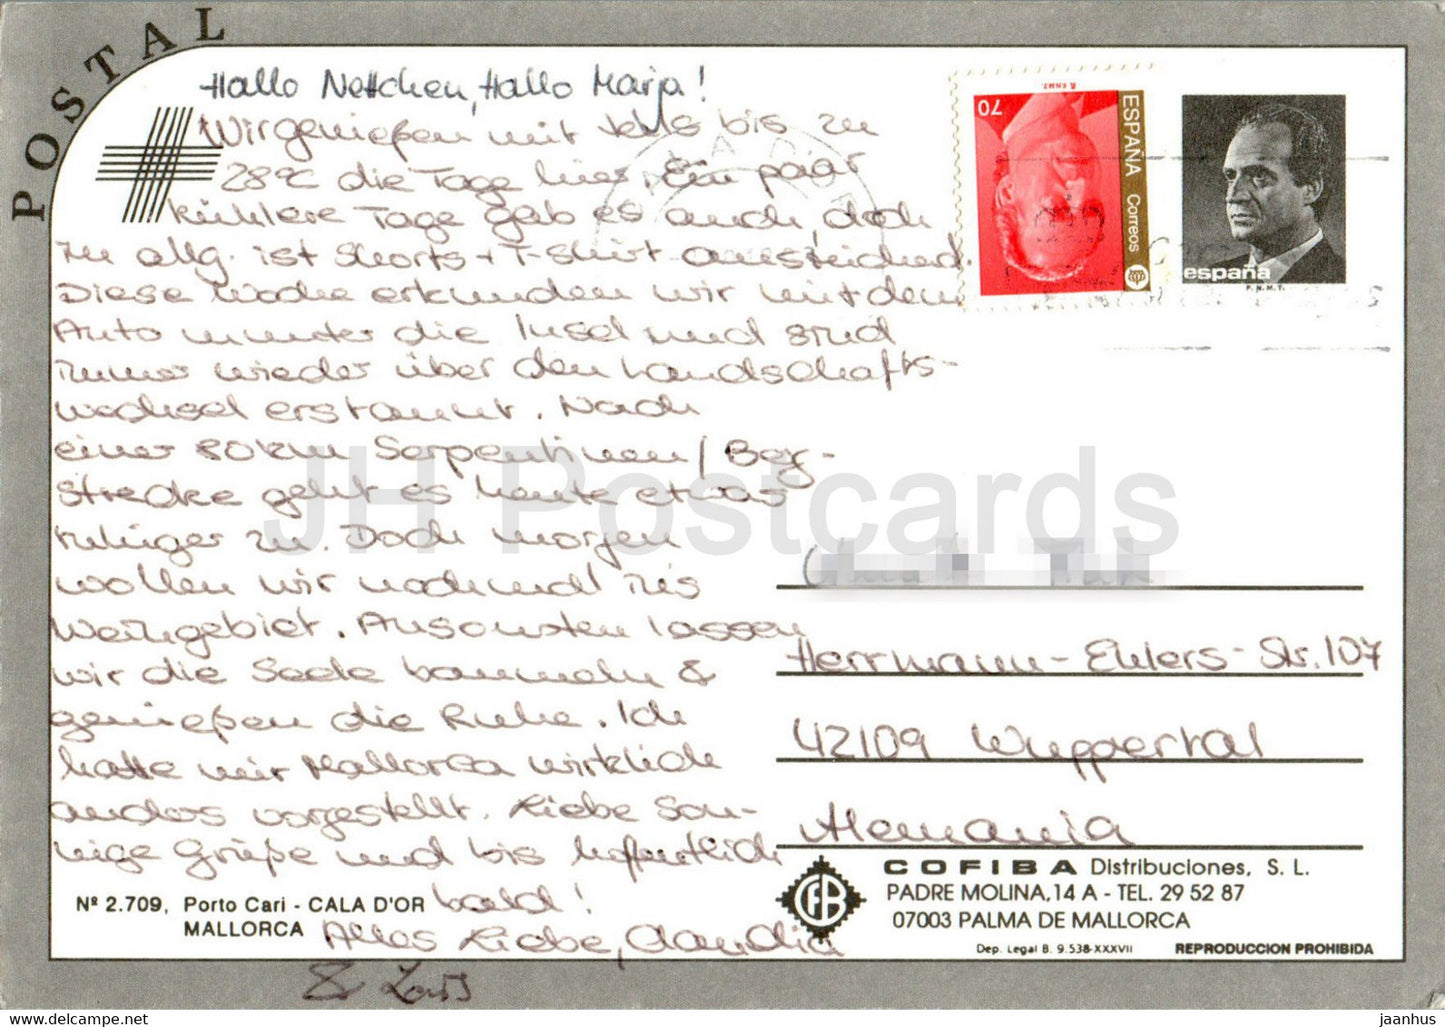 POSTAL
Hallo Nettchen, Hallo Marja!
Wir genießen mit bis zu
28°C die Tage hier. Ein paar
kühlere Tage gab es auch, doch
zu allg. ist Shorts + T-Shirt ausreichend.
Diese Woche erkunden wir mit dem
Auto munter die Insel und sind
immer wieder über den Landschafts-
wechsel erstaunt. Nach
einer 80km Serpentinen/Berg-
strecke geht es heute etwas
ruhiger zu. Doch morgen
wollen wir nochmal ins
Weingebiet. Ansonsten lassen
wir die Seele baumeln &
genießen die Ruhe. Ich
hatte mir Mallorca wirklich
anders vorgestellt. Liebe Son-
nige Grüße und bis hoffentlich
bald!
Alles Liebe, Claudia
& Lars
Nº 2.709, Porto Cari - CALA D'OR
MALLORCA
70
ESPAÑA Correos
R.F.N.M.T.
españa
F.N.M.T.
Herrmann-Ehlers-Str. 107
42109 Wuppertal
Alemania
COFIBA Distribuciones, S. L.
PADRE MOLINA, 14 A - TEL. 29 52 87
07003 PALMA DE MALLORCA
Dep. Legal B. 9.538-XXXVII
REPRODUCCION PROHIBIDA
JH Postcards
www.delcampe.net
jaanhus